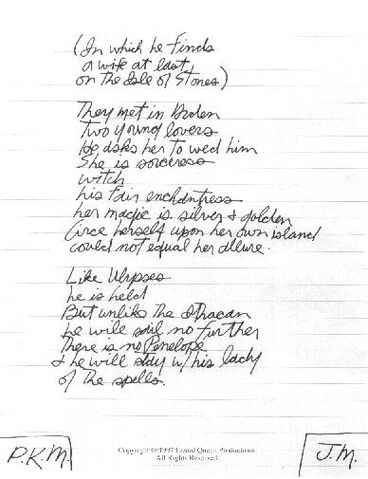 (In which he finds
a wife at last,
on the Isle of Stones)
They met in Broken
Two young lovers
He asks her to wed him
She is sorceress
witch
his fair enchantress
her magic is silver & golden
Circe herself upon her own island
could not equal her allure.
Like Ulysses
he is held
But unlike The Ithacan
he will sail no further
There is no Penelope
& he will stay w/ his lady
of The spells.
Copyright © 1997 Lizard Queen Productions
All Rights Reserved
P.K.M.
J.M.